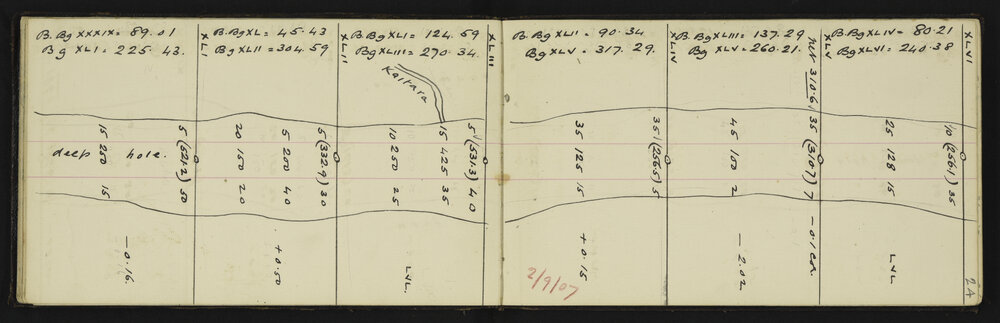 B.Bg XXXIX = 89.01
Bg XLI = 225.43.
XLI
B.Bg XL = 45.43
Bg XLII = 304.59
XLII
B.Bg XLI = 124.59
Bg XLIII = 270.34.
XLIII
Kaitara
15 200 15
deep hole.
5 (521.2) 50
20 150 20
5 200 40
5 (332.9) 30
10 250 25
15 425 35
5 (531.3) 40
- 0.16.
+ 0.50
LVL.
B.Bg XLII = 90.34
Bg XLV = 317.29.
XLIV
B.Bg XLIII = 137.29
Bg XLV = 260.21.
XLV
B.Bg XLIV = 80.21
Bg XLVI = 240.38
XLVI
310.6
35 125 15
35 (256.5) 5
45 100 2
35 (310.7) 7
- 0.1 cor.
25 128 15
10 (256.1) 35
+ 0.15
- 2.02
LVL
2/9/07
2A